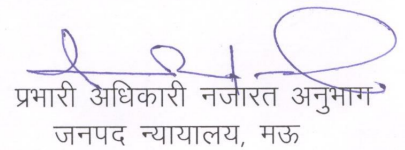 प्रभारी अधिकारी नजारत अनुभाग
जनपद न्यायालय, मऊ